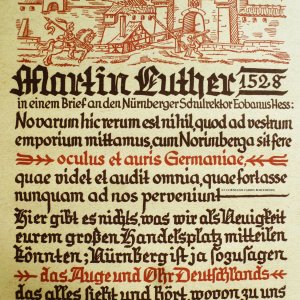 Martin Luther 1528
in einem Brief an den Nürnberger Schulrektor Eobanus Hess:
Novarum hic rerum est nihil, quod ad vestrum
emporium mittamus, cum Norimberga sit fere
oculus et auris Germaniae,
quae videt et audit omnia, quae fortasse
nunquam ad nos perveniunt
Hier gibt es nichts, was wir als Neuigkeit
eurem großen Handelsplatz mitteilen
könnten; Nürnberg ist ja sozusagen
das Auge und Ohr Deutschlands
das alles sieht und hört wovon zu uns